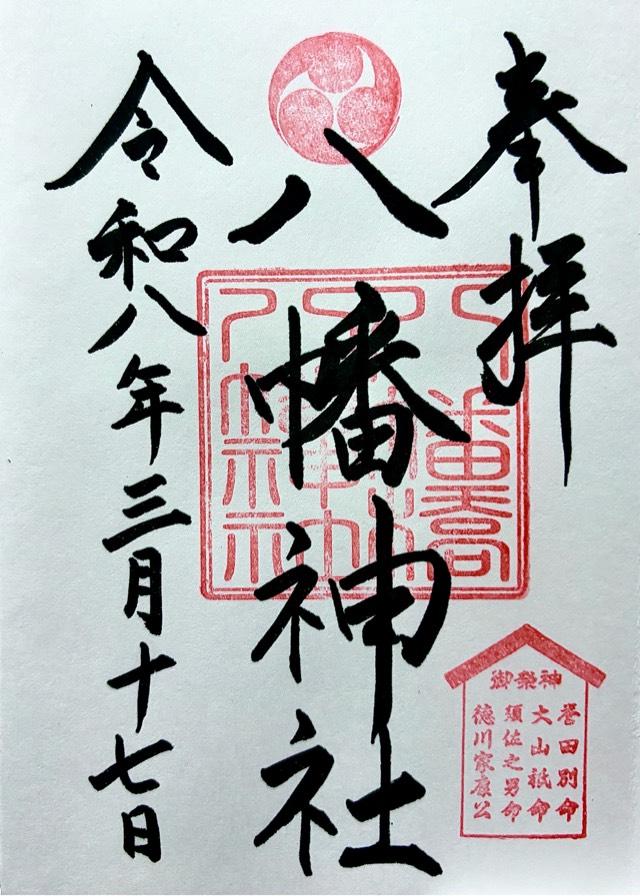 奉拝
八幡神社
令和八年三月十七日
御祭神
誉田別命
大山祇命
須佐之男命
徳川家康公